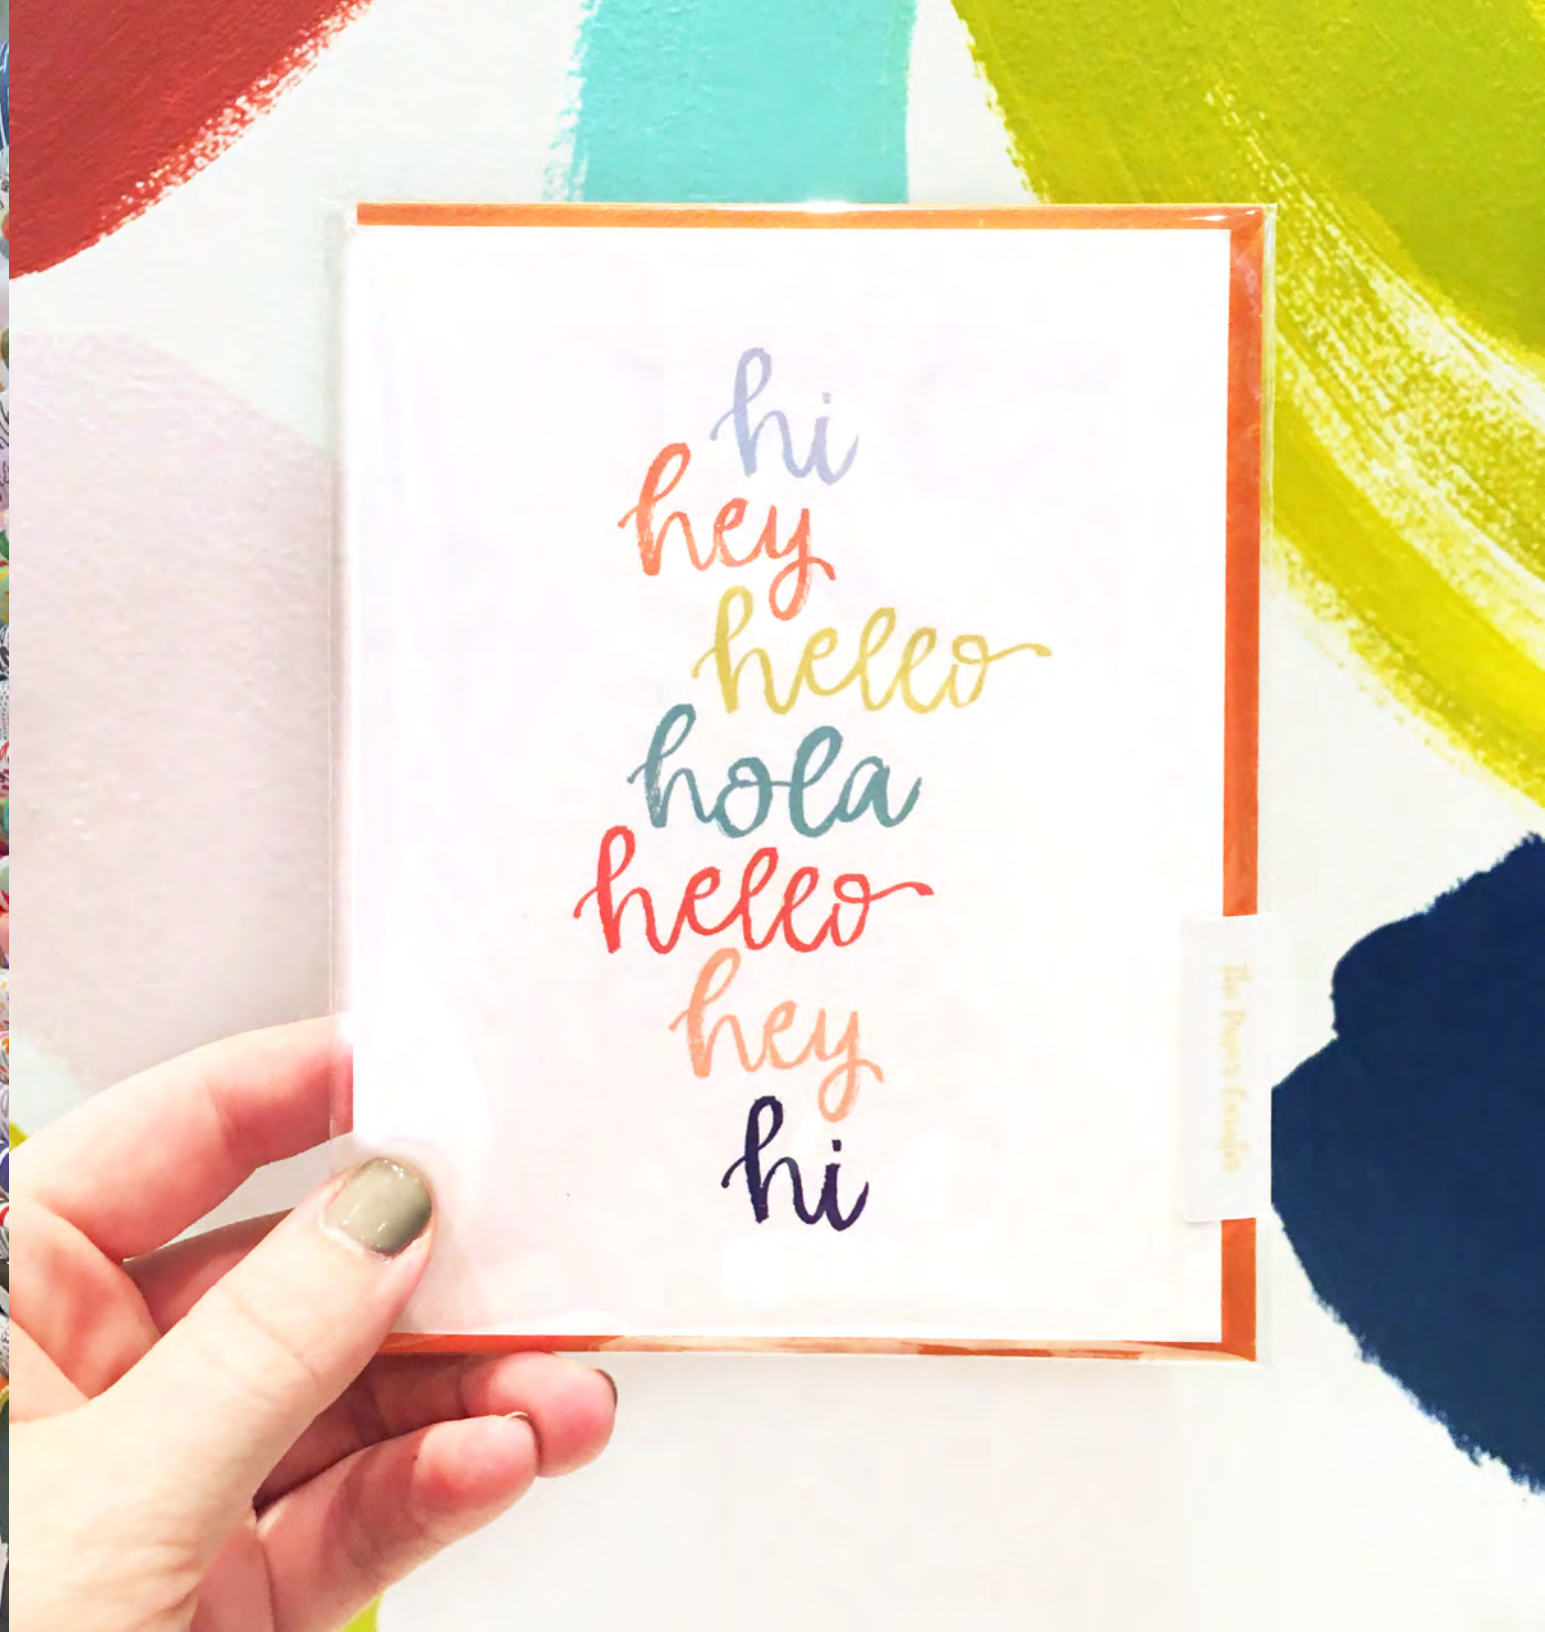 hi
hey
hello
hola
hello
hey
hi
The Paper